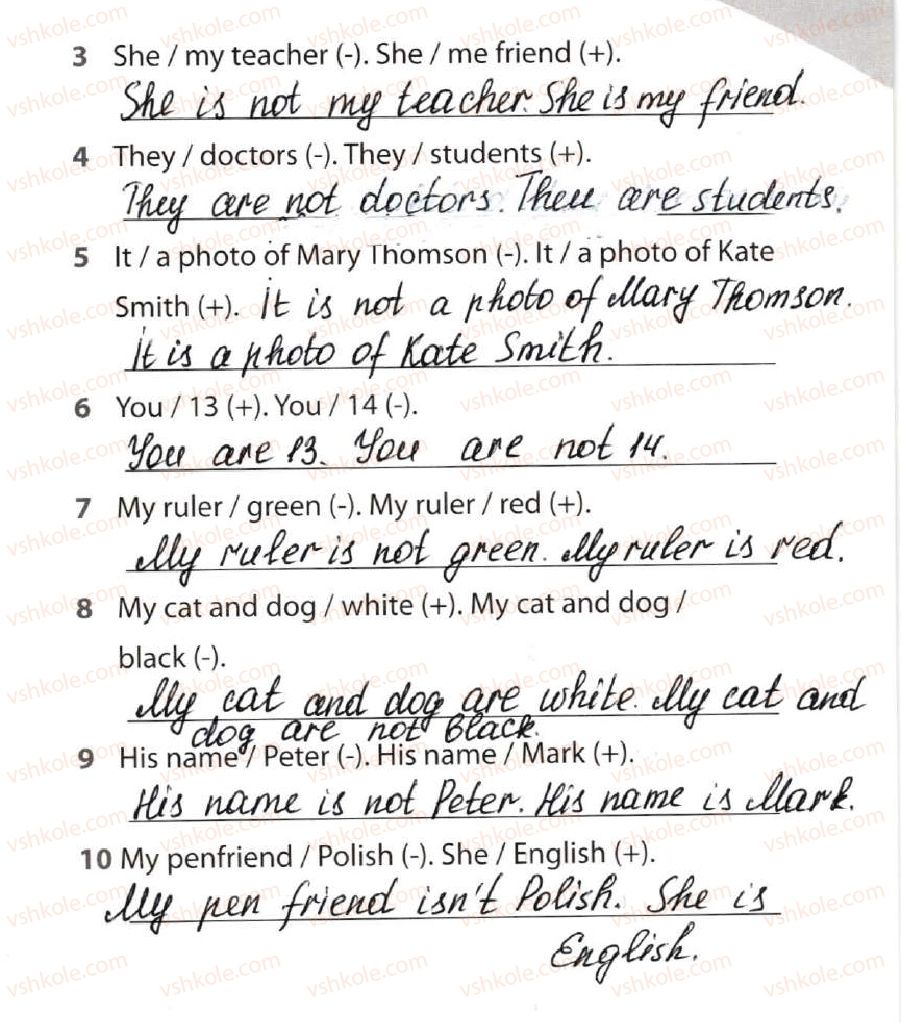 3 She / my teacher (-). She / me friend (+).
She is not my teacher. She is my friend.
4 They / doctors (-). They / students (+).
They are not doctors. They are students.
5 It / a photo of Mary Thomson (-). It / a photo of Kate
Smith (+). It is not a photo of Mary Thomson.
It is a photo of Kate Smith.
6 You / 13 (+). You / 14 (-).
You are 13. You are not 14.
7 My ruler / green (-). My ruler / red (+).
My ruler is not green. My ruler is red.
8 My cat and dog / white (+). My cat and dog /
black (-).
My cat and dog are white. My cat and
dog are not black.
9 His name / Peter (-). His name / Mark (+).
His name is not Peter. His name is Mark.
10 My penfriend / Polish (-). She / English (+).
My pen friend isn't Polish. She is
English.
vshkole.com